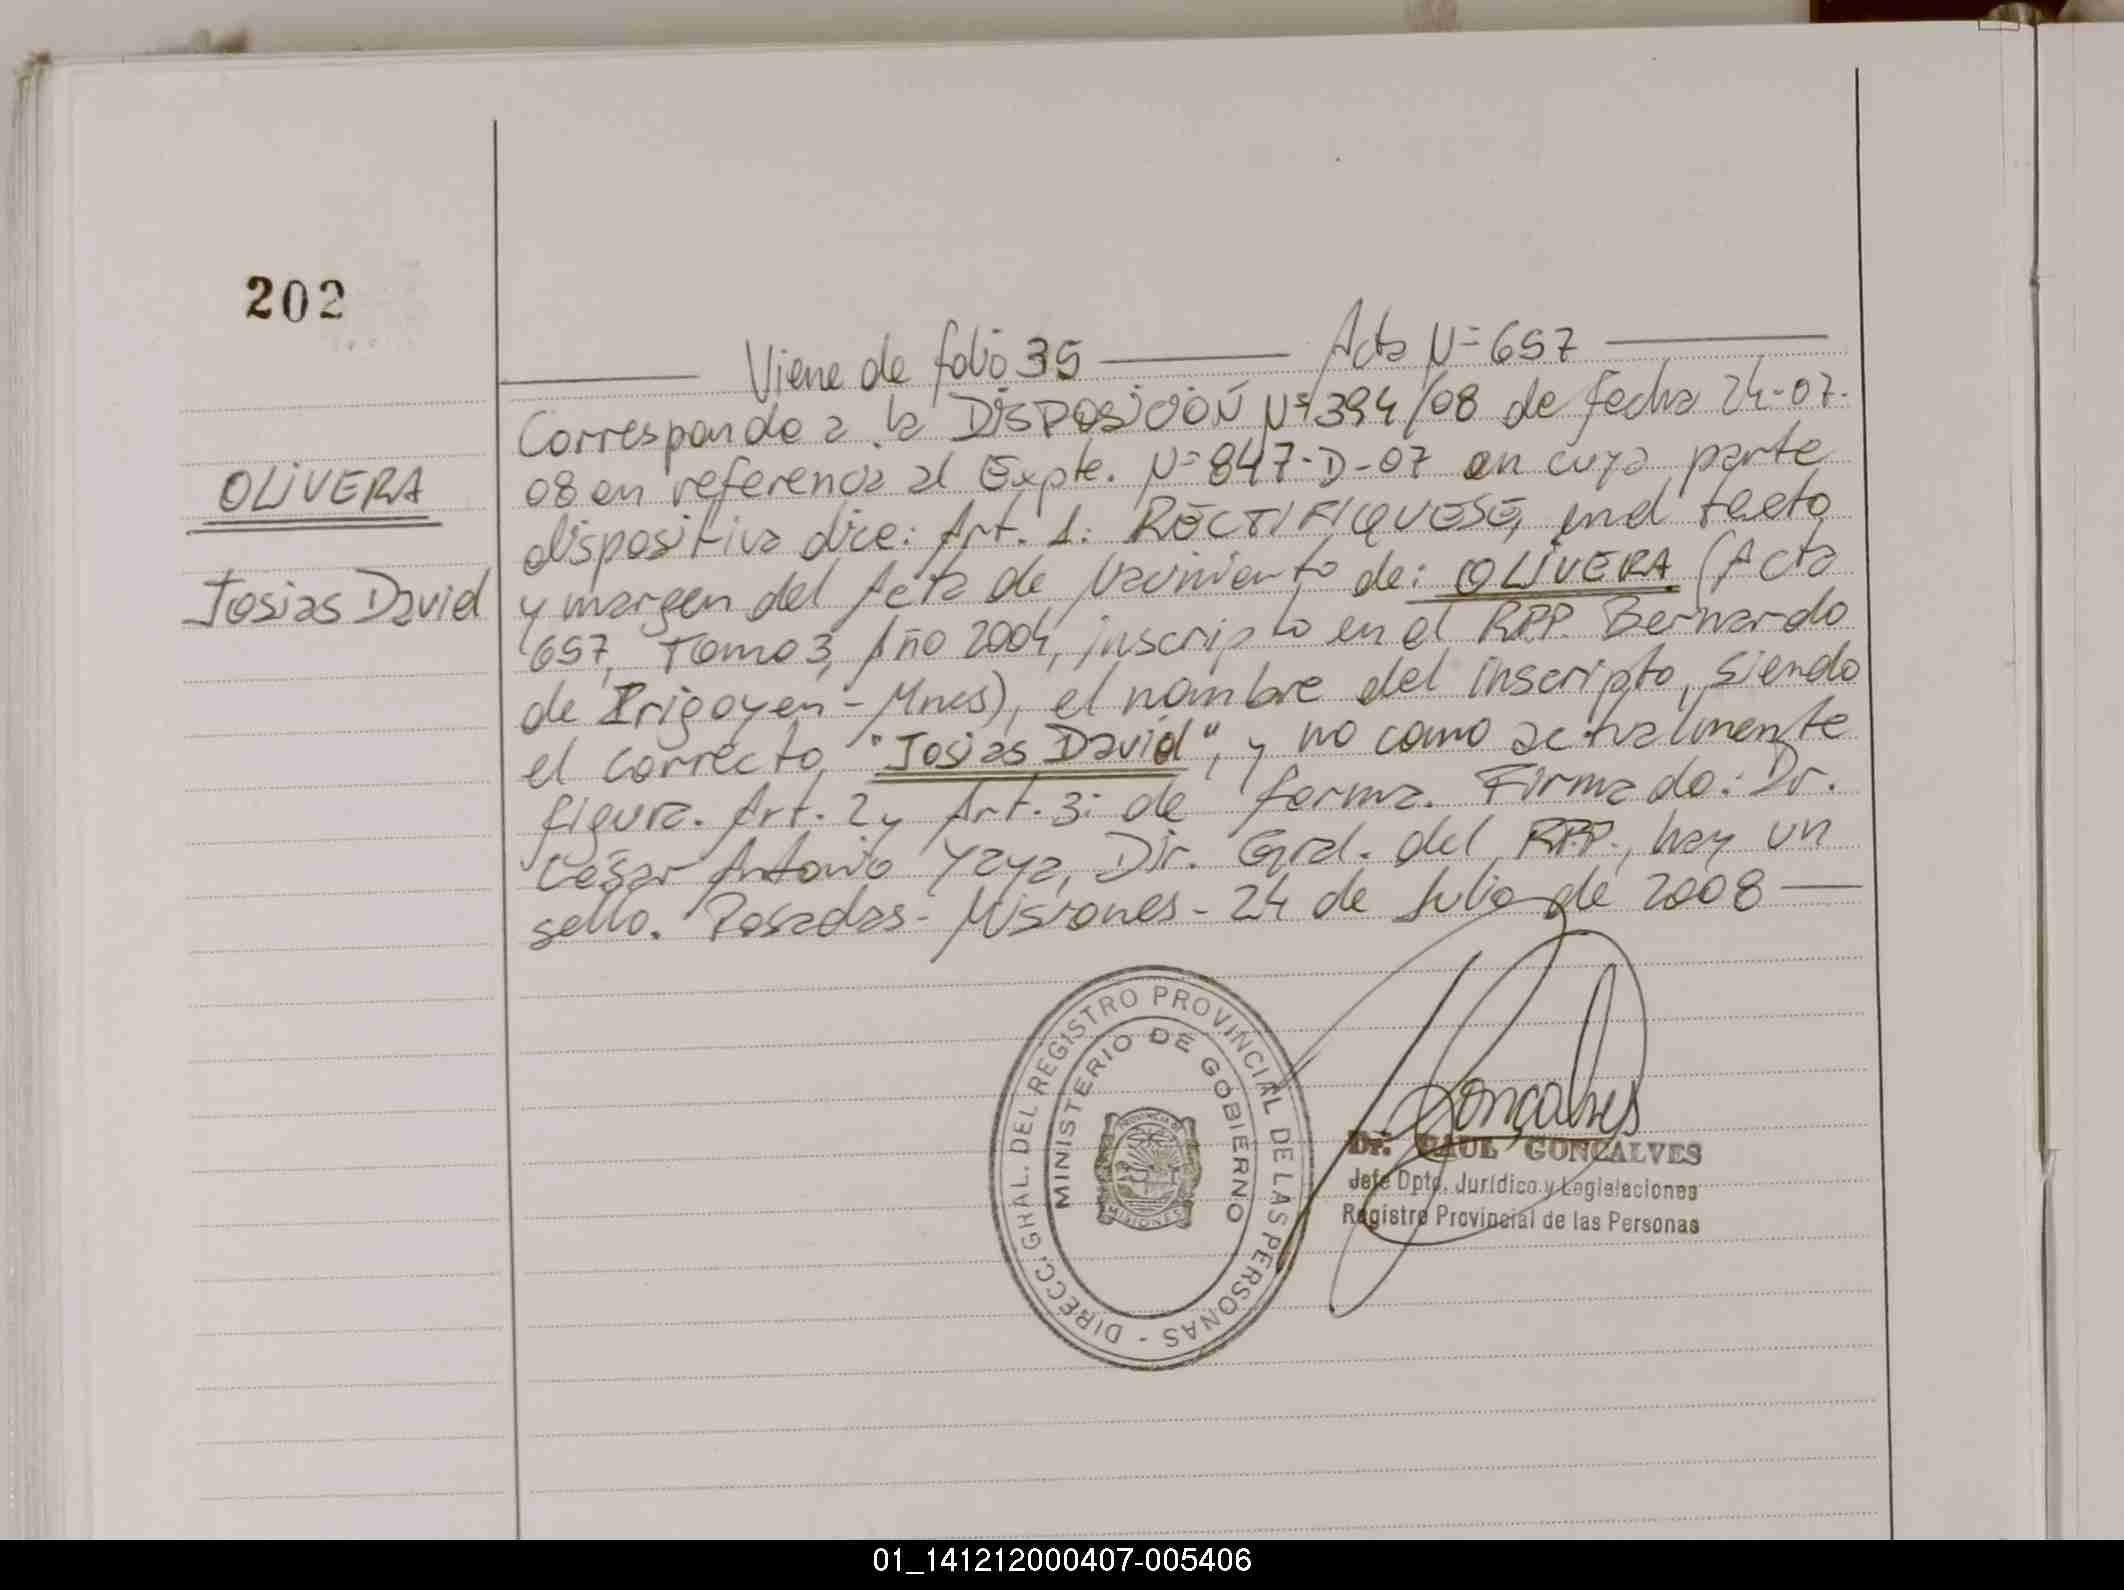 202
OLIVERA
Josias David
Viene de folio 35 — Acta Nº 657 —
Corresponde a la DISPOSICIÓN Nº 394/08 de fecha 24-07-
08 en referencia al Expte. Nº 847-D-07 en cuya parte
dispositiva dice: Art. 1: RECTIFIQUESE, en el texto
y margen del Acta de Nacimiento de: OLIVERA (Acta
657, Tomo 3, Año 2004, inscripto en el RPP. Bernardo
de Irigoyen - Mnes), el nombre del inscripto, siendo
el correcto "Josias David", y no como actualmente
figura. Art. 2 y Art. 3: de forma. Firmado: Dr.
César Antonio Yaya, Dir. Gral. del RPP., hay un
sello. Posadas - Misiones - 24 de Julio de 2008 —
DIRECC. GRAL. DEL REGISTRO PROVINCIAL DE LAS PERSONAS -
MINISTERIO DE GOBIERNO
PROVINCIA DE
MISIONES
Gonçalves
Dr. RAUL GONÇALVES
Jefe Dpto. Jurídico y Legislaciones
Registro Provincial de las Personas
01_141212000407-005406